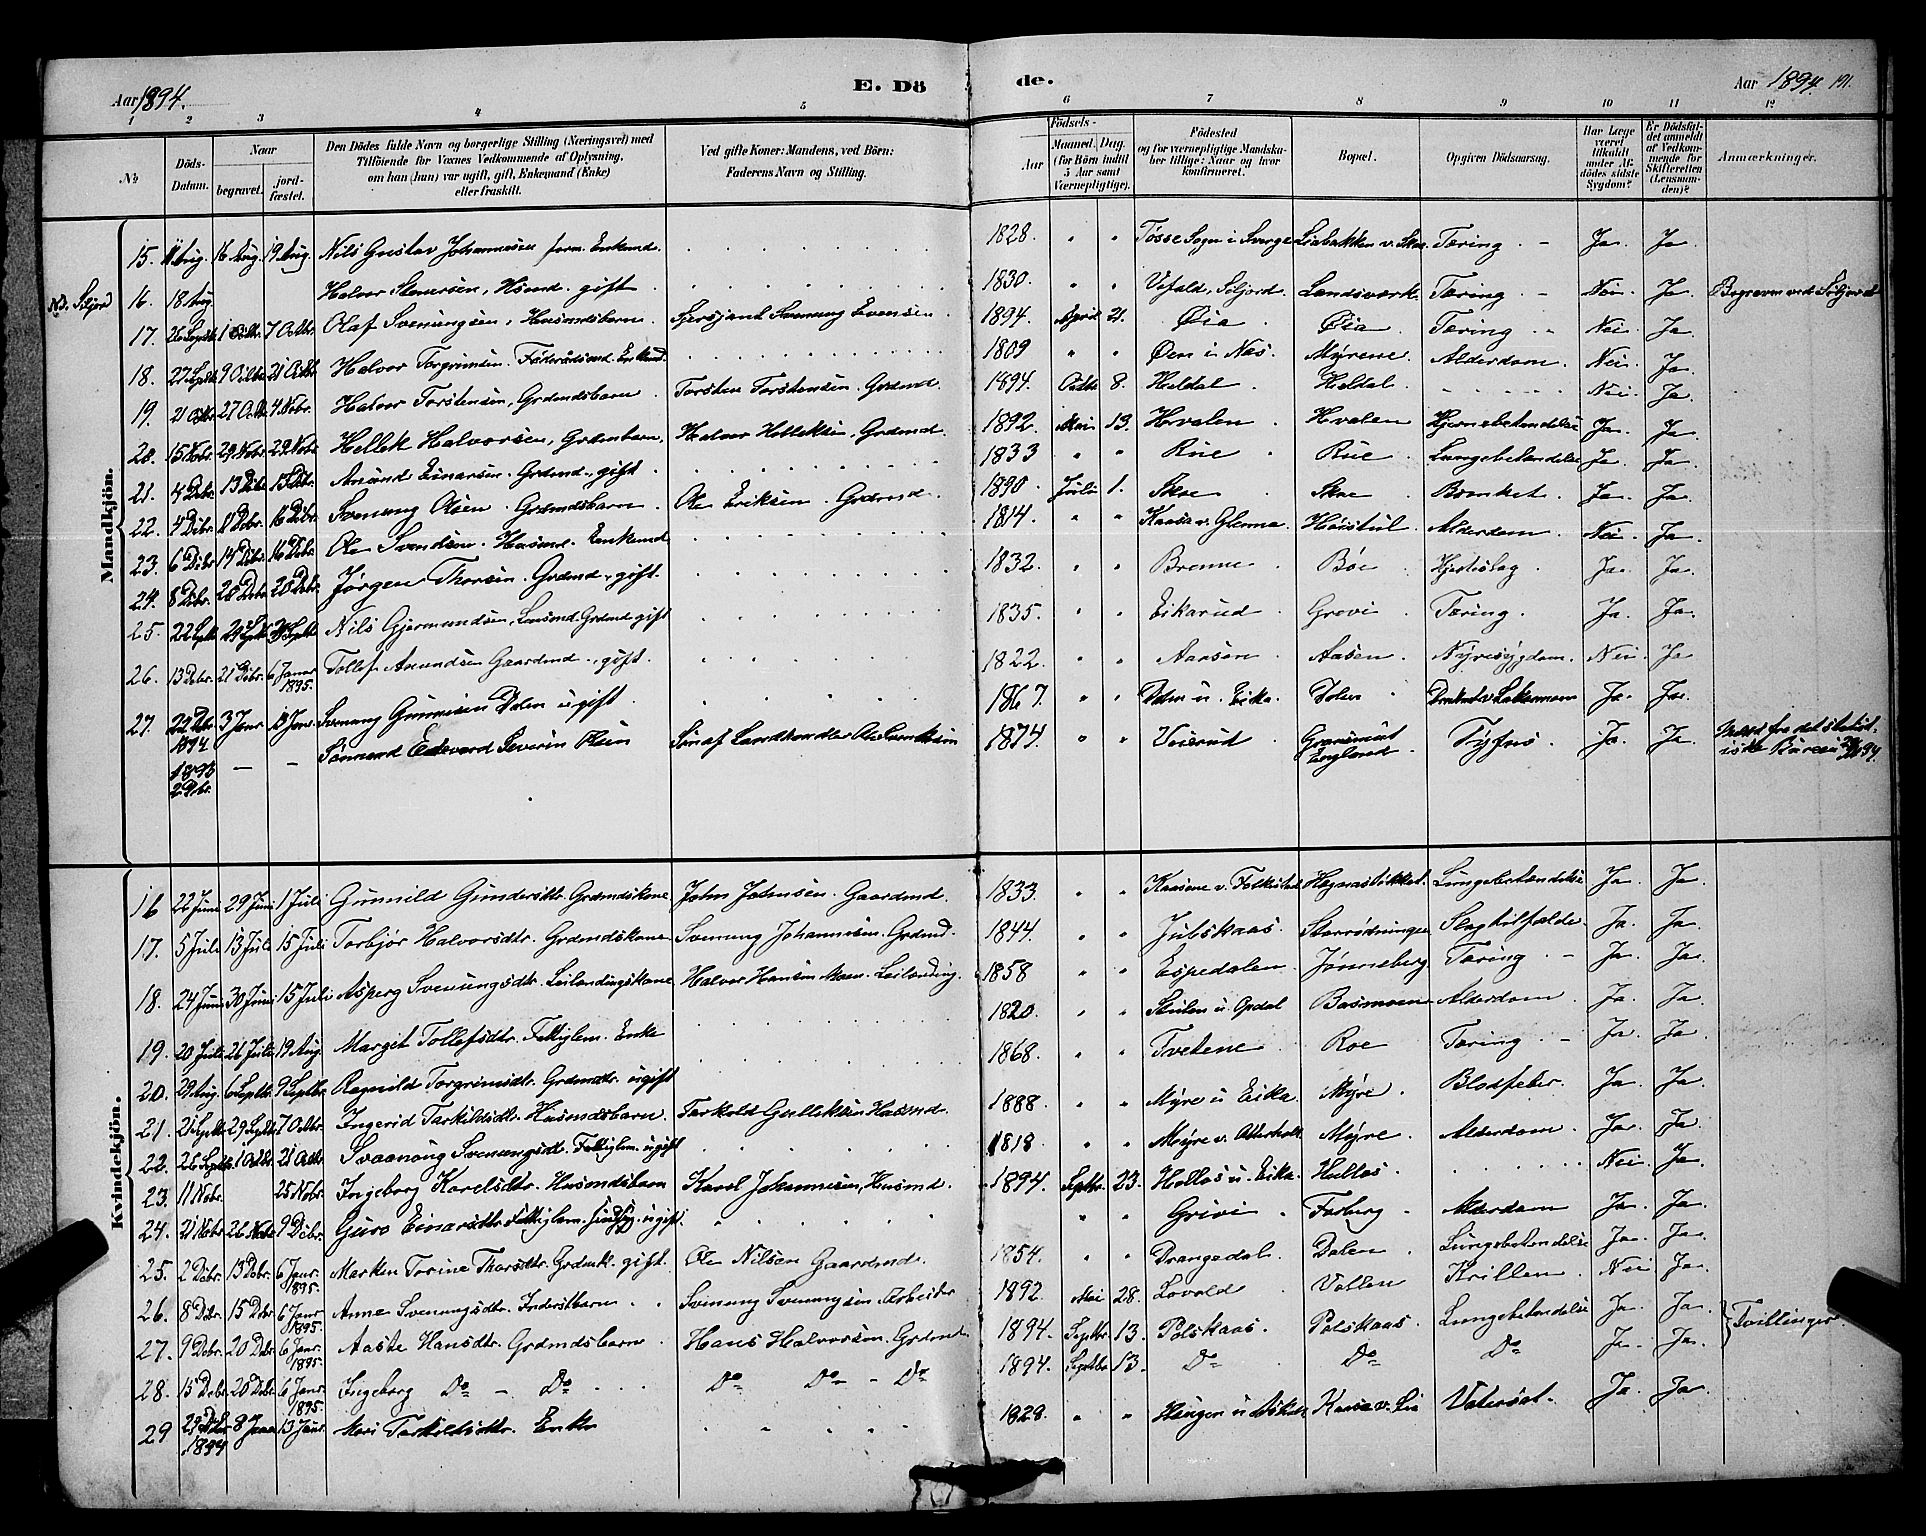 Aar 1894.
E. Dö
de.
Aar 1894. 191.
1 2 3 4 5 6 7 8 9 10 11 12
No
Döds-Datum.
Naar
begravet.
jord-fæstet.
Den Dödes fulde Navn og borgerlige Stilling (Næringsvei) med
Tilföiende for Voxnes Vedkommende af Oplysning,
om han (hun) var ugift, gift, Enkemand (Enke)
eller fraskilt.
Ved gifte Koner: Mandens, ved Börn:
Faderens Navn og Stilling.
Födsels-
Aar
Maaned. Dag.
(for Börn indtil
5 Aar samt
Værnepligtige).
Födested
og for værnepligtige Mandska-
ber tillige: Naar og hvor
konfirmeret.
Bopæl.
Opgiven Dödsaarsag.
Har Læge
været
tilkaldt
under Af-
dödes sidste
Sygdom?
Er Dödsfal-
det anmeldt
af Vedkom-
mende for
Skifteretten
(Lensman-
den)?
Anmærkninger.
Mandkjön.
15. 11 Aug. 16 Aug. 19 Aug. Nils Gustav Johannesen form. Enkemd. 1828. Tösse Sogn i Sverge Liabakken v. Skoe Tæring. Ja. Ja.
16. 18 Aug. Halvor Stenersen, Husmd. gift 1830. Vefald, Siljord. Landsværk. Tæring. Nei. Ja. Begraven ved Siljord
17. 26 Septbr. 1 Octbr. 7 Octbr. Olaf Svenungsen, Husmdsbarn. Sersjant Svenung Evensen 1894. April 21. Øia Øia Tæring. Nei. Ja.
18. 27 Septbr. 9 Octbr. 21 Octbr. Halvor Torgrimsen. Föderaadsmd. Enkemd. 1809 Øen i Næs Myrene. Alderdom. Nei. Ja.
19. 21 Octbr. 27 Octbr. 4 Nobr. Halvor Torstensen, Grdmdsbarn. Torsten Torstensen, Grdmd. 1894. Octbr. 8. Heldal. Heldal. Nei. Ja.
20. 15 Nobr. 29 Nobr. 29 Nobr. Hellek Halvorsen, Grdmbarn. Halvor Helleksen, Grdmd. 1892. Mai 13. Hvalen Hvalen Hjernebetændelse Ja. Ja.
21. 4 Debr. 13 Debr. 13 Debr. Anund Einarsen. Grdmd., gift. 1833 Rue Rue. Lungebetændelse Ja. Ja.
22. 4 Debr. 11 Debr. 16 Debr. Svenung Olsen. Grdmdsbarn. Ole Eriksen. Grdmd. 1890. Juli 1. Skoe Skoe Ja. Ja.
23. 6 Debr. 14 Debr. 16 Debr. Ole Svendsen. Husmd. Enkemd 1814. Kaasa v. Glenna. Alderdom. Nei. Ja.
24. 8 Debr. 20 Debr. 20 Debr. Jörgen Thorsen. Grdmd., gift. 1832. Brenne Böe Hjerteslag Ja. Ja.
25. 22 Septbr. Nils Gjermundsen, Grdmd gift 1835. Eikarud. Grovi Tæring. Ja. Ja.
26. 13 Debr. 21 Debr. 6 Janr. 1895. Tollef Anundsen Gaardmd., gift. 1822. Aasen Aasen Nyresygdom. Nei. Ja
27. 3 Janr. 13 Janr. Svenung Gunnisen Dalen ugift 1867. Dalen u. Eika. Dalen Ja. Ja.
1894
1893 2 Debr. — — Sömand Edvard Severin Olsen Sön af Landhandler 1874 Veierud England Tyfus. Ja. Ja. fra det statist-
iske Bureau
Kvindekjön.
16 22 Juni 29 Juni 1 Juli Gunnild Gundersdtr. Grdmdskone John Johnsen. Gaardmd. 1833. Kaasene v. Folkestad Lungebetændelse Ja. Ja.
17. 5 Juli 13 Juli 15 Juli Torbjör Halvorsdtr. Grdmdskone Svenung Johannesen. Grdmd. 1844. Julskaas. Slagtilfælde. Ja. Ja.
18. 24 Juni 30 Juni 15 Juli Asperg Svenungsdtr. Leilendingskone Halvor Hansen Moen. Leilending. 1858 Espedalen Jönneberg Tæring. Ja. Ja.
19. 20 Juli. 26 Juli 19 Aug. Margit Tollefsdtr. Fattiglem. Enke 1820. Opdal Basmoen Alderdom Ja. Ja
20. 29 Aug. 6 Septbr. 9 Septbr. Ragnild Torgrimsdtr. Grdmdtr. ugift 1868. Tvetene. Roe Tæring. Ja. Ja
21. 21 Septbr. 29 Septbr. 7 Octbr. Ingerid Tarkildsdtr. Husmdsbarn. Tarkild Gulleksen Husmd. 1888. Myre u. Eika. Myre. Blodfeber. Ja. Ja
22. 26 Septbr. 1 Octbr. 21 Octbr. Svaanaug Svenungsdtr. Fattiglem. ugift 1818 Moyre v. Otterholt Myre. Alderdom. Ja. Ja.
23. 11 Nobr. 25 Nobr. Ingeborg Karelsdtr. Husmdsbarn Karel Johannesen, Husmd. 1894. Septbr. 23. Hollas u. Eika. Hullas. Nei. Ja.
24. 21 Nobr. 26 Nobr. 9 Debr. Guro Einarsdtr. Fattiglem. sindssyg. ugift Grivi Forberg Alderdom Ja. Ja.
25. 2 Debr. 13 Debr. 6 Janr. 1895. Marken Torine Thorsdtr. Grdmk. gift. Ole Nilsen Gaardmd. 1854. Drangedal. Dalen Lungebetændelse Ja. Ja.
26. 8 Debr. 15 Debr. 6 Janr. 1895. Anne Svenungsdtr. Inderstbarn. Svenung Svenungsen. Arbeider 1892. Mai 28. Lovald Vallen Krillen. Nei Ja.
27. 9 Debr. 20 Debr. 6 Janr. 1895. Aaste Hansdtr. Grdmdsbarn. Hans Halvorsen. Grdmd 1894. Septbr. 13. Polskaas. Polskaas. Lungebetændelse Ja. Ja. } Tvillinger.
28. 15 Debr. 20 Debr. 6 Janr. 1895. Ingeborg Do — Do Do Do — Do 1894. Septbr. 13. Do Do Do Ja. Ja.
29 8 Janr. 13 Janr. Mari Tarkildsdtr. Enke 1828. Kaasa v. Lia Vatersot. Ja. Ja.
1894